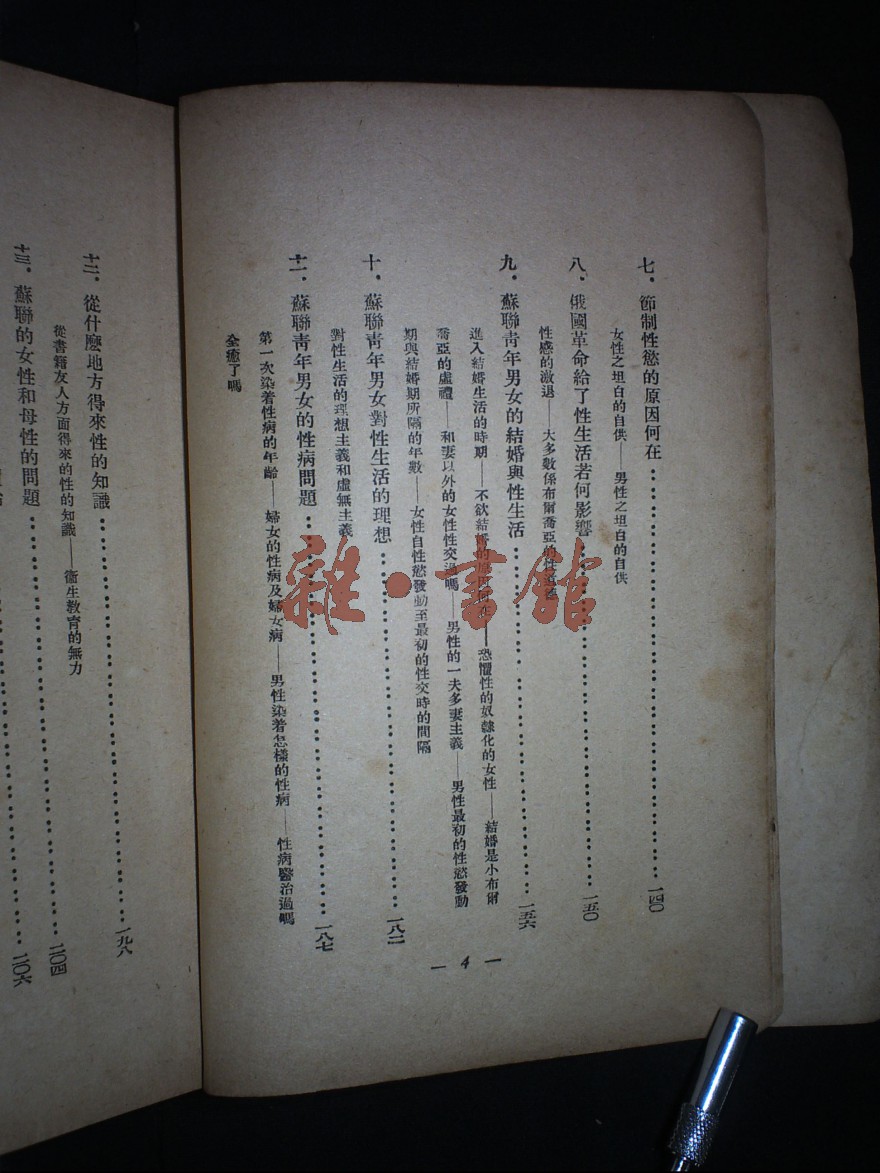 七．節制性慾的原因何在……一四〇
女性之坦白的自供——男性之坦白的自供
八．俄國革命給了性生活若何影響……一五〇
性感的激退——大多數係布爾喬亞的性道德
九．蘇聯靑年男女的結婚與性生活……一五六
進入結婚生活的時期——不欲結婚的原因何在——恐懼性的奴隸化的女性——結婚是小布爾
喬亞的虛禮——和妻以外的女性性交過嗎——男性的一夫多妻主義——男性最初的性慾發動
期與結婚期所隔的年數——女性自性慾發動至最初的性交時的間隔
十．蘇聯靑年男女對性生活的理想……一八二
對性生活的理想主義和虛無主義
十一．蘇聯靑年男女的性病問題……一八七
第一次染着性病的年齡——婦女的性病及婦女病——男性染着怎樣的性病——性病醫治過嗎
全癒了嗎
— 4 —
十二．從什麼地方得來性的知識……一九八
從書籍友人方面得來的性的知識——衞生敎育的無力……二〇四
十三．蘇聯的女性和母性的問題……二〇六
雜·書館